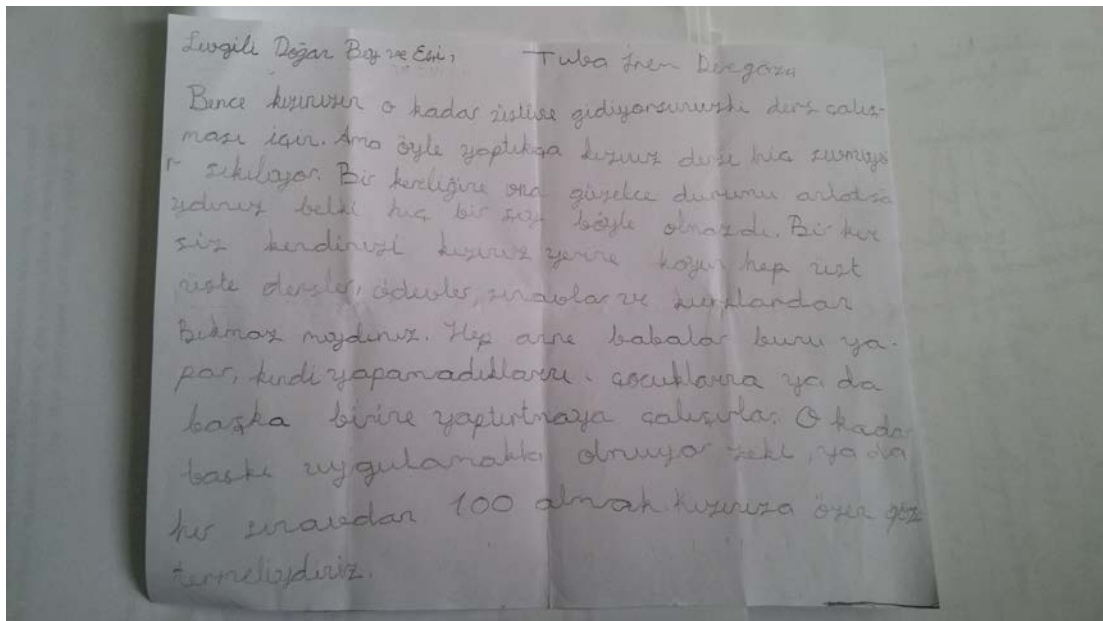 Sevgili Doğan Bey ve Eşi, Tuba İrem
Bence kızınızın o kadar üstüne gidiyorsunuzki ders çalış-
ması için. Ama öyle yaptıkça kızınız dersi hiç sevmiyo
r sıkılıyor. Bir kereliğine ona güzelce durumu anlatsa
ydınız belki hiç bir şey böyle olmazdı. Bir kere
siz kendinizi kızınız yerine koyun hep üst
üste dersler, ödevler, sınavlar ve
Bıkmaz mıydınız. Hep anne babalar bunu ya-
par, kendi yapamadıklarını çocuklarına ya da
başka birine yaptırtmaya çalışırlar. O kadar
baskı uygulamakla olmuyor zeki ya da
her sınavdan 100 almak. kızınıza özen gös
termeliydiniz.